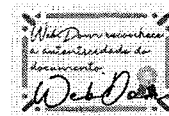 WebDom reconhece
a autenticidade do
documento.
WebDom